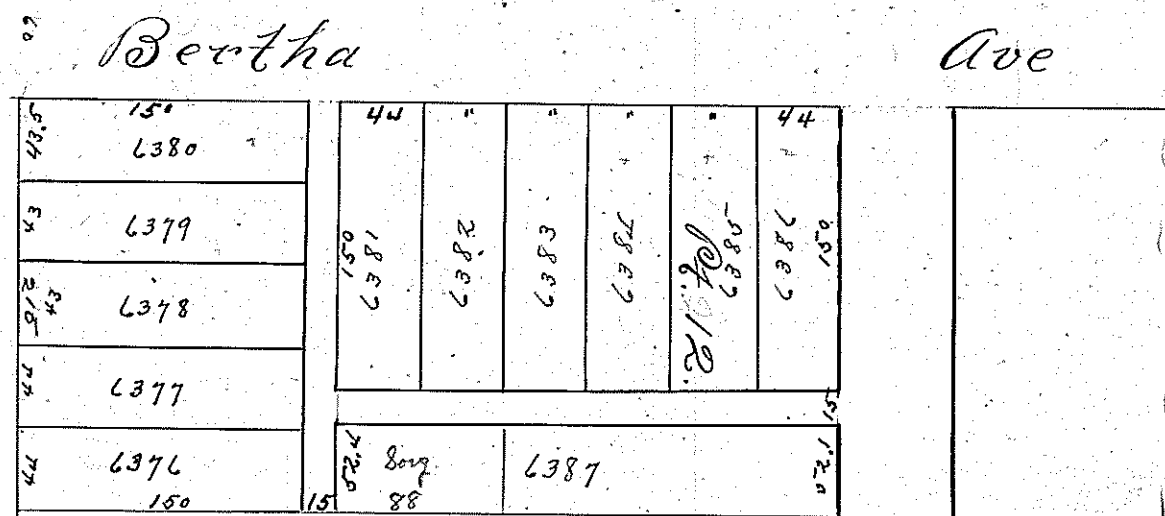 Bertha Ave
43.5 150
6380
43 6379
215 43 6378
44 6377
44 6376
150
15
44 " " " " 44
150 6381
6382
6383
6384
6385
6386 150
15
52.4
88
6387
52.1